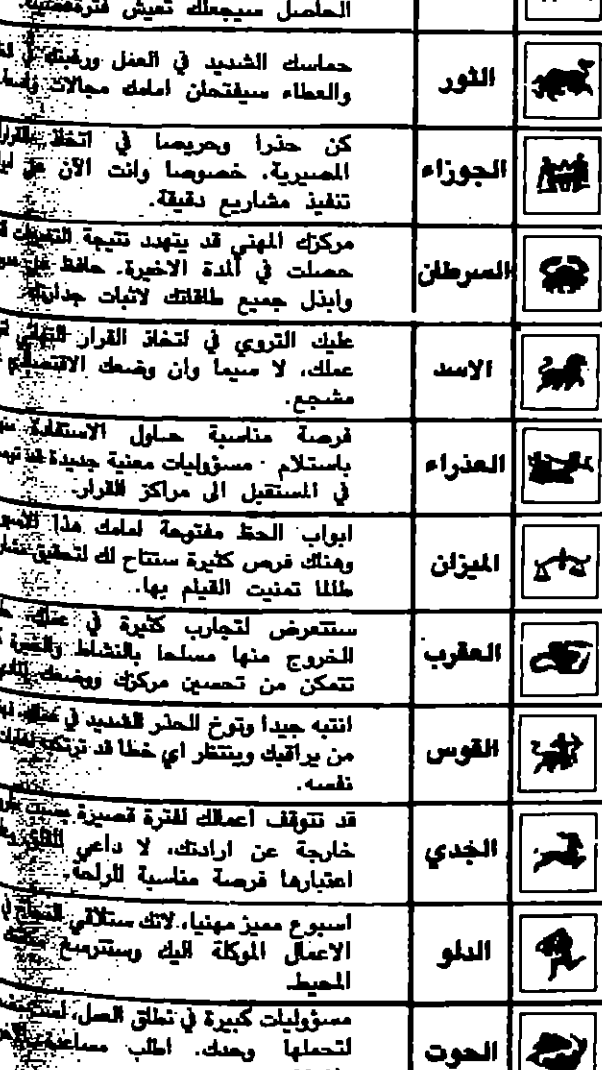 الحاصل سيجعلك تعيش فترة
الثور
حماسك الشديد في العمل ورغبتك في
والعطاء سيفتحان امامك مجالات
الجوزاء
كن حذرا وحريصا في اتخاذ
المصيرية، خصوصا وانت الآن على
تنفيذ مشاريع دقيقة.
السرطان
مركزك المهني قد يتهدد نتيجة
حصلت في المدة الاخيرة. حافظ على
وابذل جميع طاقاتك لاثبات جدارتك
الاسد
عليك التروي في اتخاذ القرار
عملك، لا سيما وان وضعك
مشجع.
العذراء
فرصة مناسبة حاول الاستفادة منها
باستلام مسؤوليات معنية جديدة قد
في المستقبل الى مراكز القرار.
الميزان
ابواب الحظ مفتوحة امامك هذا
وهناك فرص كثيرة ستتاح لك لتحقيق
طالما تمنيت القيام بها.
العقرب
ستتعرض لتجارب كثيرة في عملك،
الخروج منها مسلحا بالنشاط والخبرة
تتمكن من تحسين مركزك ووضعك
القوس
انتبه جيدا وتوخ الحذر الشديد في عملك،
من يراقبك وينتظر اي خطا قد ترتكبه
نفسه.
الجدي
قد تتوقف اعمالك لفترة قصيرة بسبب
خارجة عن ارادتك، لا داعي للقلق
اعتبارها فرصة مناسبة للراحة.
الدلو
اسبوع مميز مهنيا، لانك ستلاقي النجاح في
الاعمال الموكلة اليك وستترسخ
المحيط.
الحوت
مسؤوليات كبيرة في نطاق العمل،
لتحملها وحدك. اطلب مساعدة